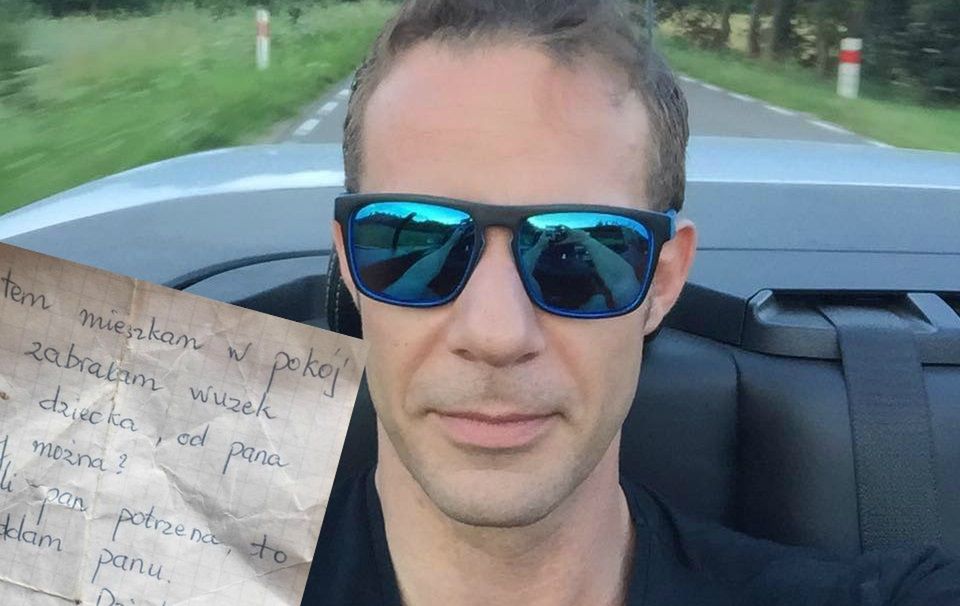 tem mieszkam w pokój
zabrałam wuzek
dziecka, od pana
można?
li pan potrzena, to
ddam panu.